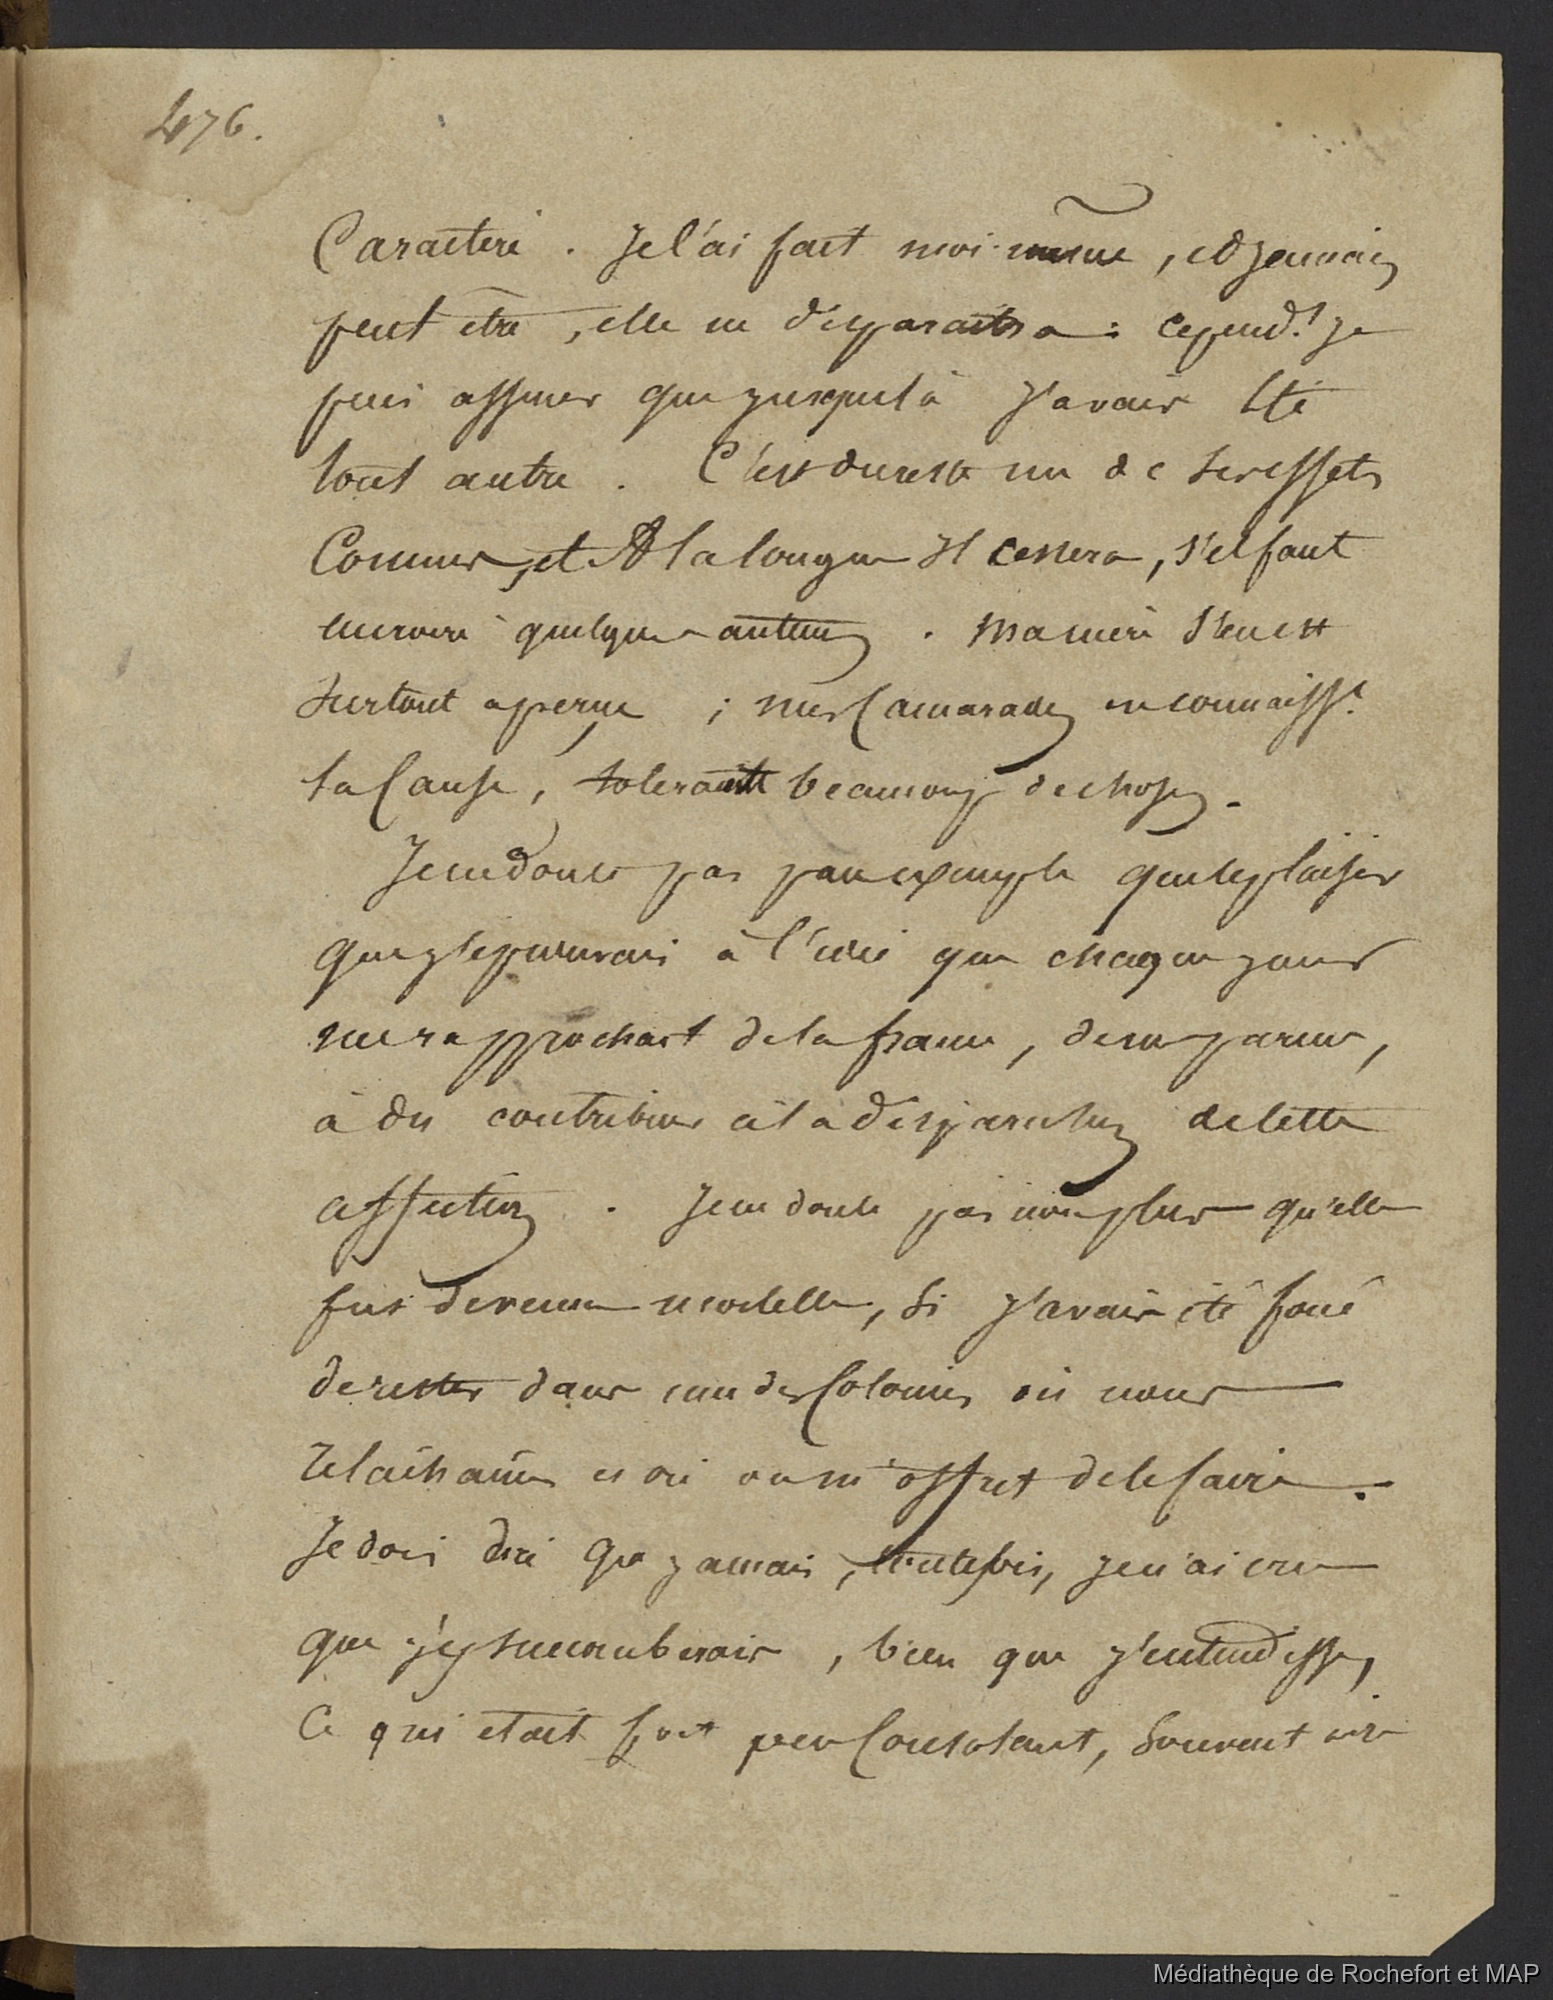 476.
Caractere . Je l'ai fait moi-même, et jamais
peut être, elle ne disparaitra : cepend.t je
puis assurer que jusque là j'avais été
tout autre . C'est du reste un de ses effets
Connus, et A la longue il cessera, s'il faut
en croire quelques auteurs . Ma mère s'en est
surtout aperçue ; mes Camarades en connaiss.t
la Cause, tolerant beaucoup de choses .
Je ne doute pas par exemple que le plaisir
que j'éprouvais à l'idée que chaque jour
me rapprochait de la france, de mes parens,
à du contribuer à la disparution de cette
affection . Je ne doute pas non plus qu'elle
fut devenue mortelle, si j'avais été forcé
de rester dans une des Colonies où nous
relachames et où on m'offrit de le faire .
Je dois dire que jamais, toutefois, je n'ai cru
que j'y succomberais, bien que j'entendisse,
Ce qui était fort peu Consolant, souvent dire
Médiathèque de Rochefort et MAP